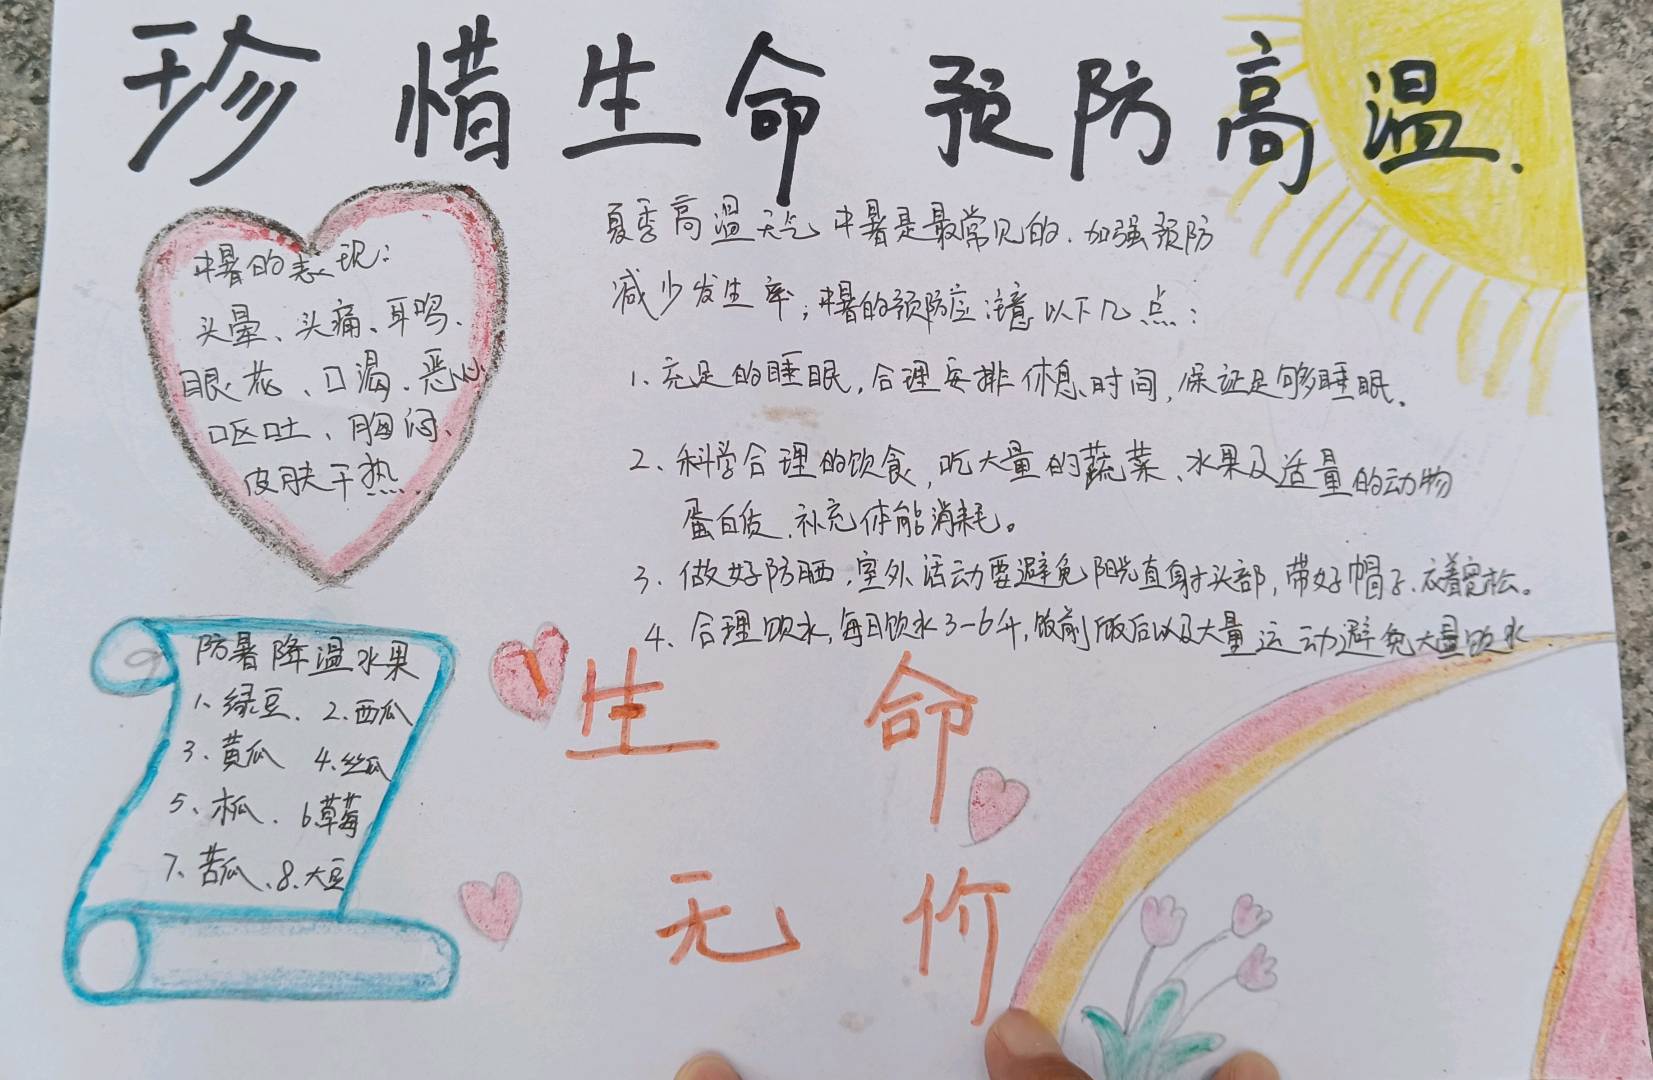 珍惜生命 预防高温.
中暑的表现:
头晕、头痛、耳鸣、
眼花、口渴、恶心
呕吐、胸闷、
皮肤干热
夏季高温天气中暑是最常见的.加强预防
减少发生率;中暑的预防应注意以下几点:
1、充足的睡眠,合理安排休息时间,保证足够睡眠.
2、科学合理的饮食,吃大量的蔬菜、水果及适量的动物
蛋白质.补充体能消耗。
3、做好防晒.室外活动要避免阳光直射头部,带好帽子.衣着宽松。
4、合理饮水,每日饮水3-6升,饭前饭后以及大量运动避免大量饮水.
防暑降温水果
1、绿豆、2、西瓜
3、黄瓜 4、丝瓜
5、木瓜、6草莓
7、苦瓜、8、大豆
生命
无价